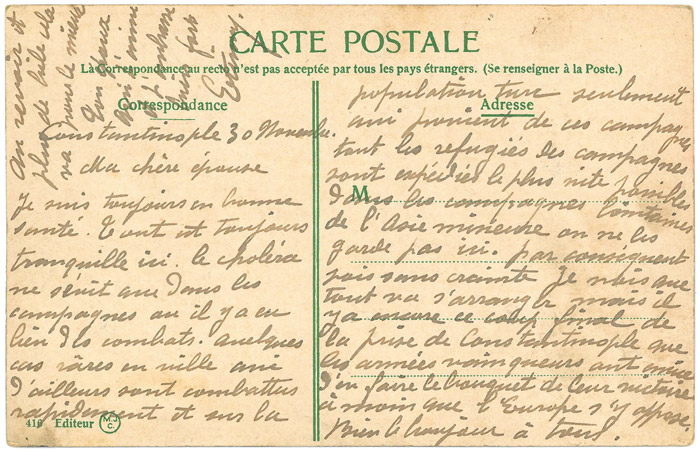 CARTE POSTALE
La Correspondance au recto n'est pas acceptée par tous les pays étrangers. (Se renseigner à la Poste.)
Correspondance
Adresse
Constantinople 30 Novembre.
Ma chère épouse
Je suis toujours en bonne
santé. Tout est toujours
tranquille ici. le choléra
ne sévit que dans les
campagnes ou il y a eu
lieu des combats. quelques
cas rares en ville qui
d'ailleurs sont combattus
rapidement et sur la
population turc seulement
qui provient de ces campagnes
tout les refugiés des campagnes
sont expédiés le plus vite possibles
dans les campagnes lointaines
de l'Asie mineure on ne les
garde pas ici. par conséquent
sois sans crainte Je vois que
tout va s'arranger mais il
y a encore ce coup final de
la prise de Constantinople que
les armées vainqueurs ont envie
d'en faire le bouquet de leur victoire
à moin que l'Europe s'y oppose.
Bien le bonjour à tous.
M
au revoir et
plus de bile cela
va dans le mieux
Ton
qui t'aime
et
bien fort
410 Editeur M.J.C.